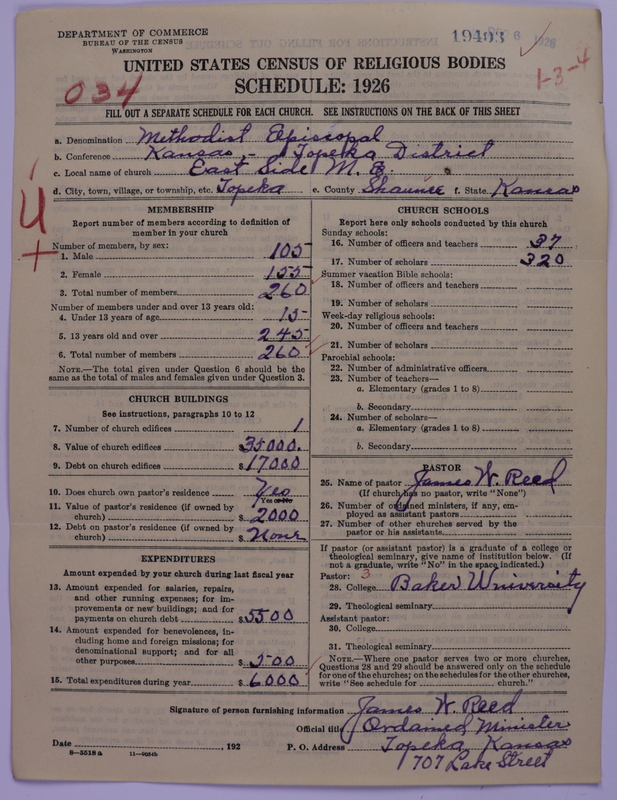 DEPARTMENT OF COMMERCE
BUREAU OF THE CENSUS
WASHINGTON
19403
UNITED STATES CENSUS OF RELIGIOUS BODIES
SCHEDULE: 1926
034
1-3-4
FILL OUT A SEPARATE SCHEDULE FOR EACH CHURCH. SEE INSTRUCTIONS ON THE BACK OF THIS SHEET
a. Denomination Methodist Episcopal
b. Conference Kansas - Topeka District
c. Local name of church East Side M. E.
d. City, town, village, or township, etc. Topeka e. County Shawnee f. State Kansas
MEMBERSHIP
Report number of members according to definition of
member in your church
Number of members, by sex:
1. Male 105
2. Female 155
3. Total number of members 260
Number of members under and over 13 years old:
4. Under 13 years of age 15
5. 13 years old and over 245
6. Total number of members 260
NOTE.—The total given under Question 6 should be the
same as the total of males and females given under Question 3.
CHURCH BUILDINGS
See instructions, paragraphs 10 to 12
7. Number of church edifices 1
8. Value of church edifices $35000.
9. Debt on church edifices $17000
10. Does church own pastor's residence Yes
Yes or No
11. Value of pastor's residence (if owned by
church) $2000
12. Debt on pastor's residence (if owned by
church) $None
EXPENDITURES
Amount expended by your church during last fiscal year
13. Amount expended for salaries, repairs,
and other running expenses; for im-
provements or new buildings; and for
payments on church debt $5500
14. Amount expended for benevolences, in-
cluding home and foreign missions; for
denominational support; and for all
other purposes $500
15. Total expenditures during year $6000
CHURCH SCHOOLS
Report here only schools conducted by this church
Sunday schools:
16. Number of officers and teachers 37
17. Number of scholars 320
Summer vacation Bible schools:
18. Number of officers and teachers
19. Number of scholars
Week-day religious schools:
20. Number of officers and teachers
21. Number of scholars
Parochial schools:
22. Number of administrative officers
23. Number of teachers—
a. Elementary (grades 1 to 8)
b. Secondary
24. Number of scholars—
a. Elementary (grades 1 to 8)
b. Secondary
PASTOR
25. Name of pastor James W. Reed
(If church has no pastor, write "None")
26. Number of ordained ministers, if any, em-
ployed as assistant pastors
27. Number of other churches served by the
pastor or his assistants
If pastor (or assistant pastor) is a graduate of a college or
theological seminary, give name of institution below. (If
not a graduate, write "No" in the space indicated.)
Pastor: 3
28. College Baker University
29. Theological seminary
Assistant pastor:
30. College
31. Theological seminary
NOTE.—Where one pastor serves two or more churches,
Questions 28 and 29 should be answered only on the schedule
for one of the churches; on the schedules for the other churches,
write "See schedule for church."
Signature of person furnishing information James W Reed
Official title Ordained Minister
Date , 192 P. O. Address Topeka Kansas
8-5518a 707 Lake Street